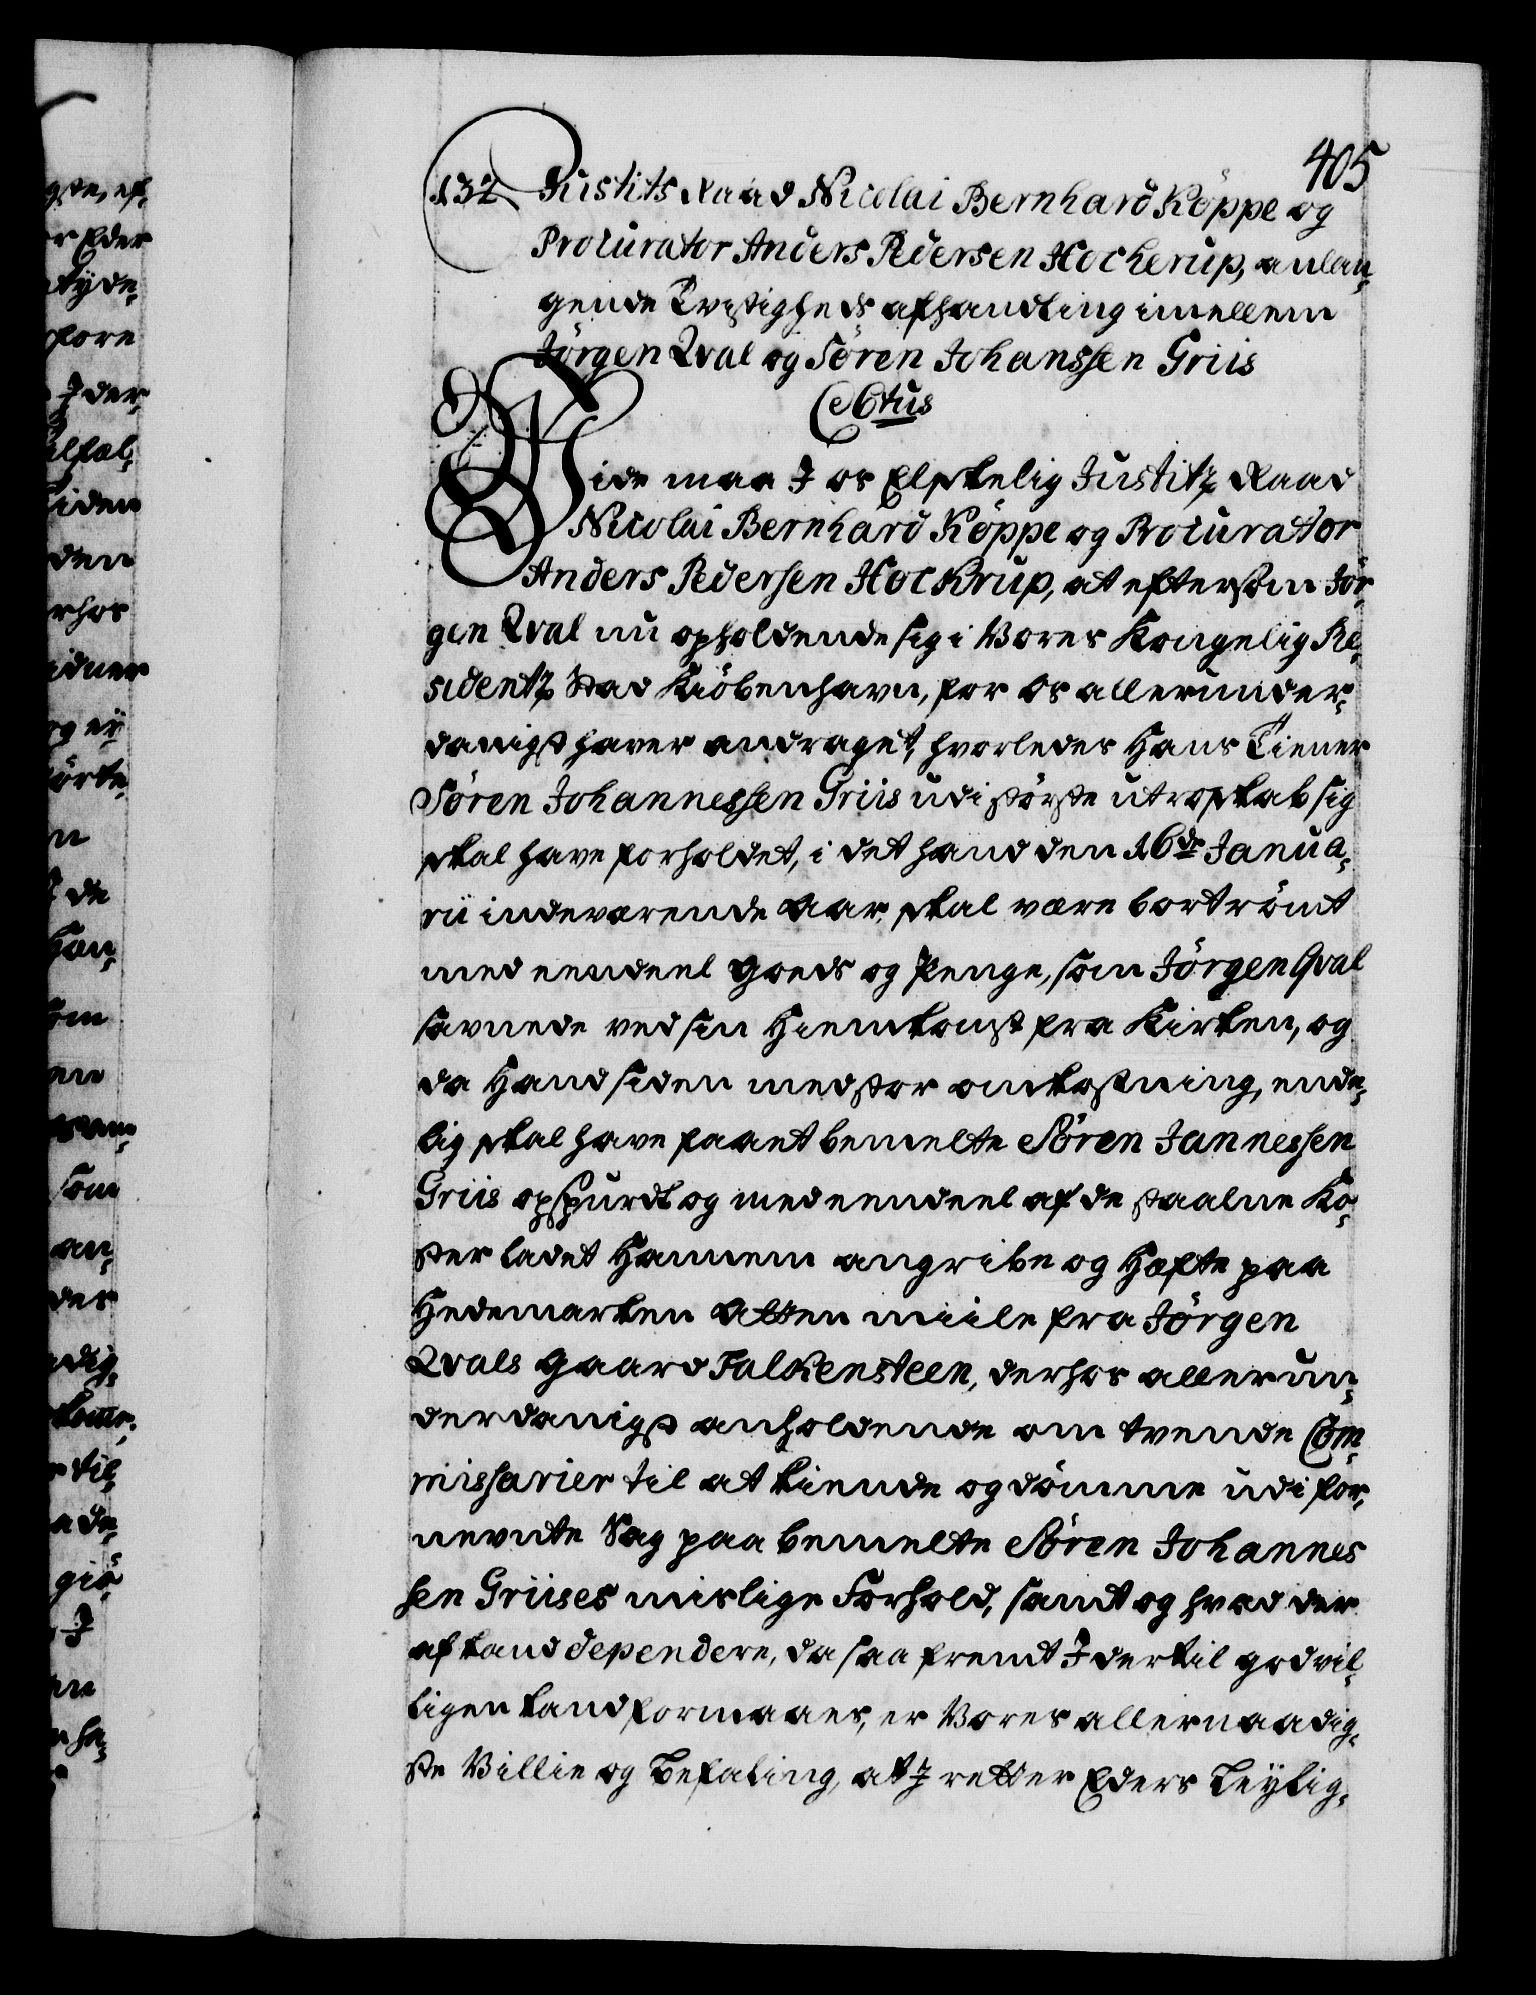 405
132 Justits Raad Nicolai Bernhard Köppe og
Procurator Anders Pedersen Hocherup, anlan-
gende Tvistigheds afhandling imellem
Jörgen Qval og Sören Johanssen Griis
Vide maa I os Elskelig Justitz Raad
Nicolai Bernhard Köppe og Procurator
Anders Pedersen Hockrup, at eftersom Jör-
gen Qval nu opholdende sig i Vores Kongelig Re-
sidentz Stad Kiöbenhavn, for os allerunder-
danigst haver andraget, hvorledes hans Tiener
Sören Johannessen Griis udi störste utroskab sig
skal have forholdet, i det hand den 16de Janua-
rii indeværende Aar, skal være bortrömt
med eendeel Goeds og Penge, som Jörgen Qval
savnede ved sin Hiemkomst fra Kirken, og
da Hand siden med stor omkostning, ende-
lig skal have faaet bemelte Sören Jannessen
Griis opspurdt og med eendeel af de staalne Ko-
ster ladet Hannem angribe og Hæfte paa
Hedemarken Atten miile fra Jörgen
Qvals Gaard Falkensteen, derhos allerun-
derdanigst anholdende om tvende Com-
missarier til at kiende og dömme udi for-
nevnte Sag paa bemelte Sören Johannes
sen Griises mislige Forhold, samt og hvad der
af kand dependere, da saa fremt I dertil godvil-
ligen kand formaaes, er Vores allernaadig-
ste Villie og Befaling, at I retter Eders Leylig-